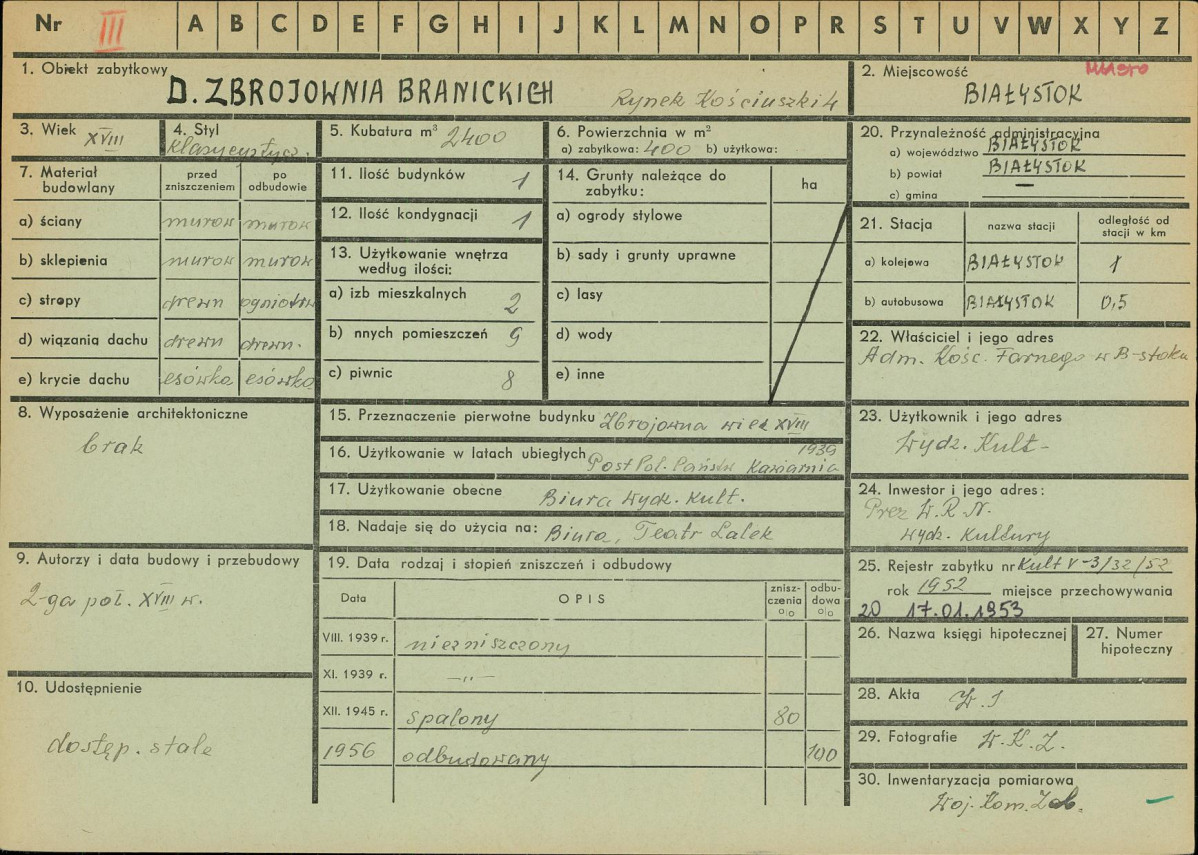 Nr III A B C D E F G H I J K L M N O P R S T U V W X Y Z
1. Obiekt zabytkowy
D. ZBROJOWNIA BRANICKICH Rynek Kościuszki 4
2. Miejscowość miasto
BIAŁYSTOK
3. Wiek XVIII
4. Styl
klasycystycz.
5. Kubatura m³ 2400
6. Powierzchnia w m²
a) zabytkowa: 400 b) użytkowa:
7. Materiał budowlany
przed zniszczeniem
po odbudowie
a) ściany murow murow
b) sklepienia murow murow
c) stropy drewn ogniotrw
d) wiązania dachu drewn drewn.
e) krycie dachu esówka esówka
8. Wyposażenie architektoniczne
brak
9. Autorzy i data budowy i przebudowy
2-ga poł. XVIII w.
10. Udostępnienie
dostęp. stale
11. Ilość budynków 1
12. Ilość kondygnacji 1
13. Użytkowanie wnętrza
według ilości:
a) izb mieszkalnych 2
b) nnych pomieszczeń 9
c) piwnic 8
14. Grunty należące do
zabytku:
ha
a) ogrody stylowe
b) sady i grunty uprawne
c) lasy
d) wody
e) inne
15. Przeznaczenie pierwotne budynku Zbrojowna wiek XVIII
16. Użytkowanie w latach ubiegłych Post Pol. Państw Kawiarnia 1939
17. Użytkowanie obecne Biura Wydz. Kult.
18. Nadaje się do użycia na: Biura, Teatr Lalek
19. Data rodzaj i stopień zniszczeń i odbudowy
Data OPIS znisz-czenia o/o odbu-dowa o/o
VIII. 1939 r. niezniszczony
XI. 1939 r. —„—
XII. 1945 r. spalony 80
1956 odbudowany 100
20. Przynależność administracyjna
a) województwo BIAŁYSTOK
b) powiat BIAŁYSTOK
c) gmina —
21. Stacja nazwa stacji odległość od stacji w km
a) kolejowa BIAŁYSTOK 1
b) autobusowa BIAŁYSTOK 0,5
22. Właściciel i jego adres
Adm. Kośc. Farnego w B-stoku
23. Użytkownik i jego adres
Wydz. Kult-
24. Inwestor i jego adres:
Prez W.R.N.
Wydz. Kultury
25. Rejestr zabytku nr Kult V-3/32/52
rok 1952 miejsce przechowywania
20 17.01.1953
26. Nazwa księgi hipotecznej
27. Numer
hipoteczny
28. Akta
29. Fotografie W.K.Z.
30. Inwentaryzacja pomiarowa
Woj. Kom. Zab.